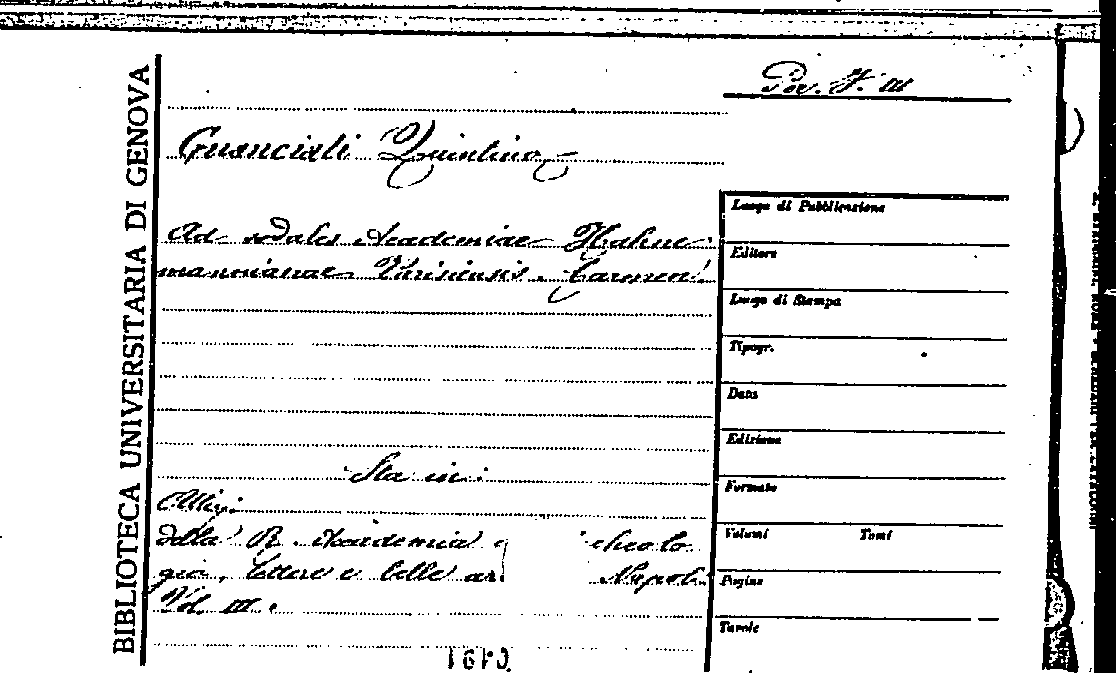 BIBLIOTECA UNIVERSITARIA DI GENOVA
Per. F. III
Guanciali Quintino
Ad sodales Academiae Hahne-
mannianae Parisiensis. Carmen.
Sta in:
Atti
della R. Accademia
gia, lettere e belle ar Napoli
Vol. III.
Luogo di Pubblicazione
Editore
Luogo di Stampa
Tipogr.
Data
Edizione
Formato
Volumi Tomi
Pagine
Tavole